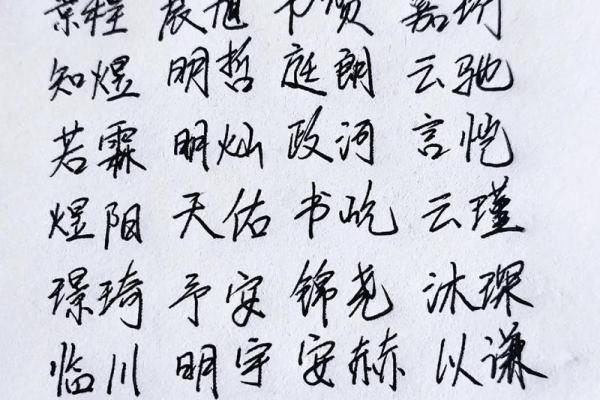 景程 宸旭 书贤 嘉珩
知煜 明哲 庭朗 云驰
若霖 明灿 政河 言恺
煜阳 天佑 书屹 云瑾
璟琦 予安 锦尧 沐琛
临川 明宇 安赫 以谦